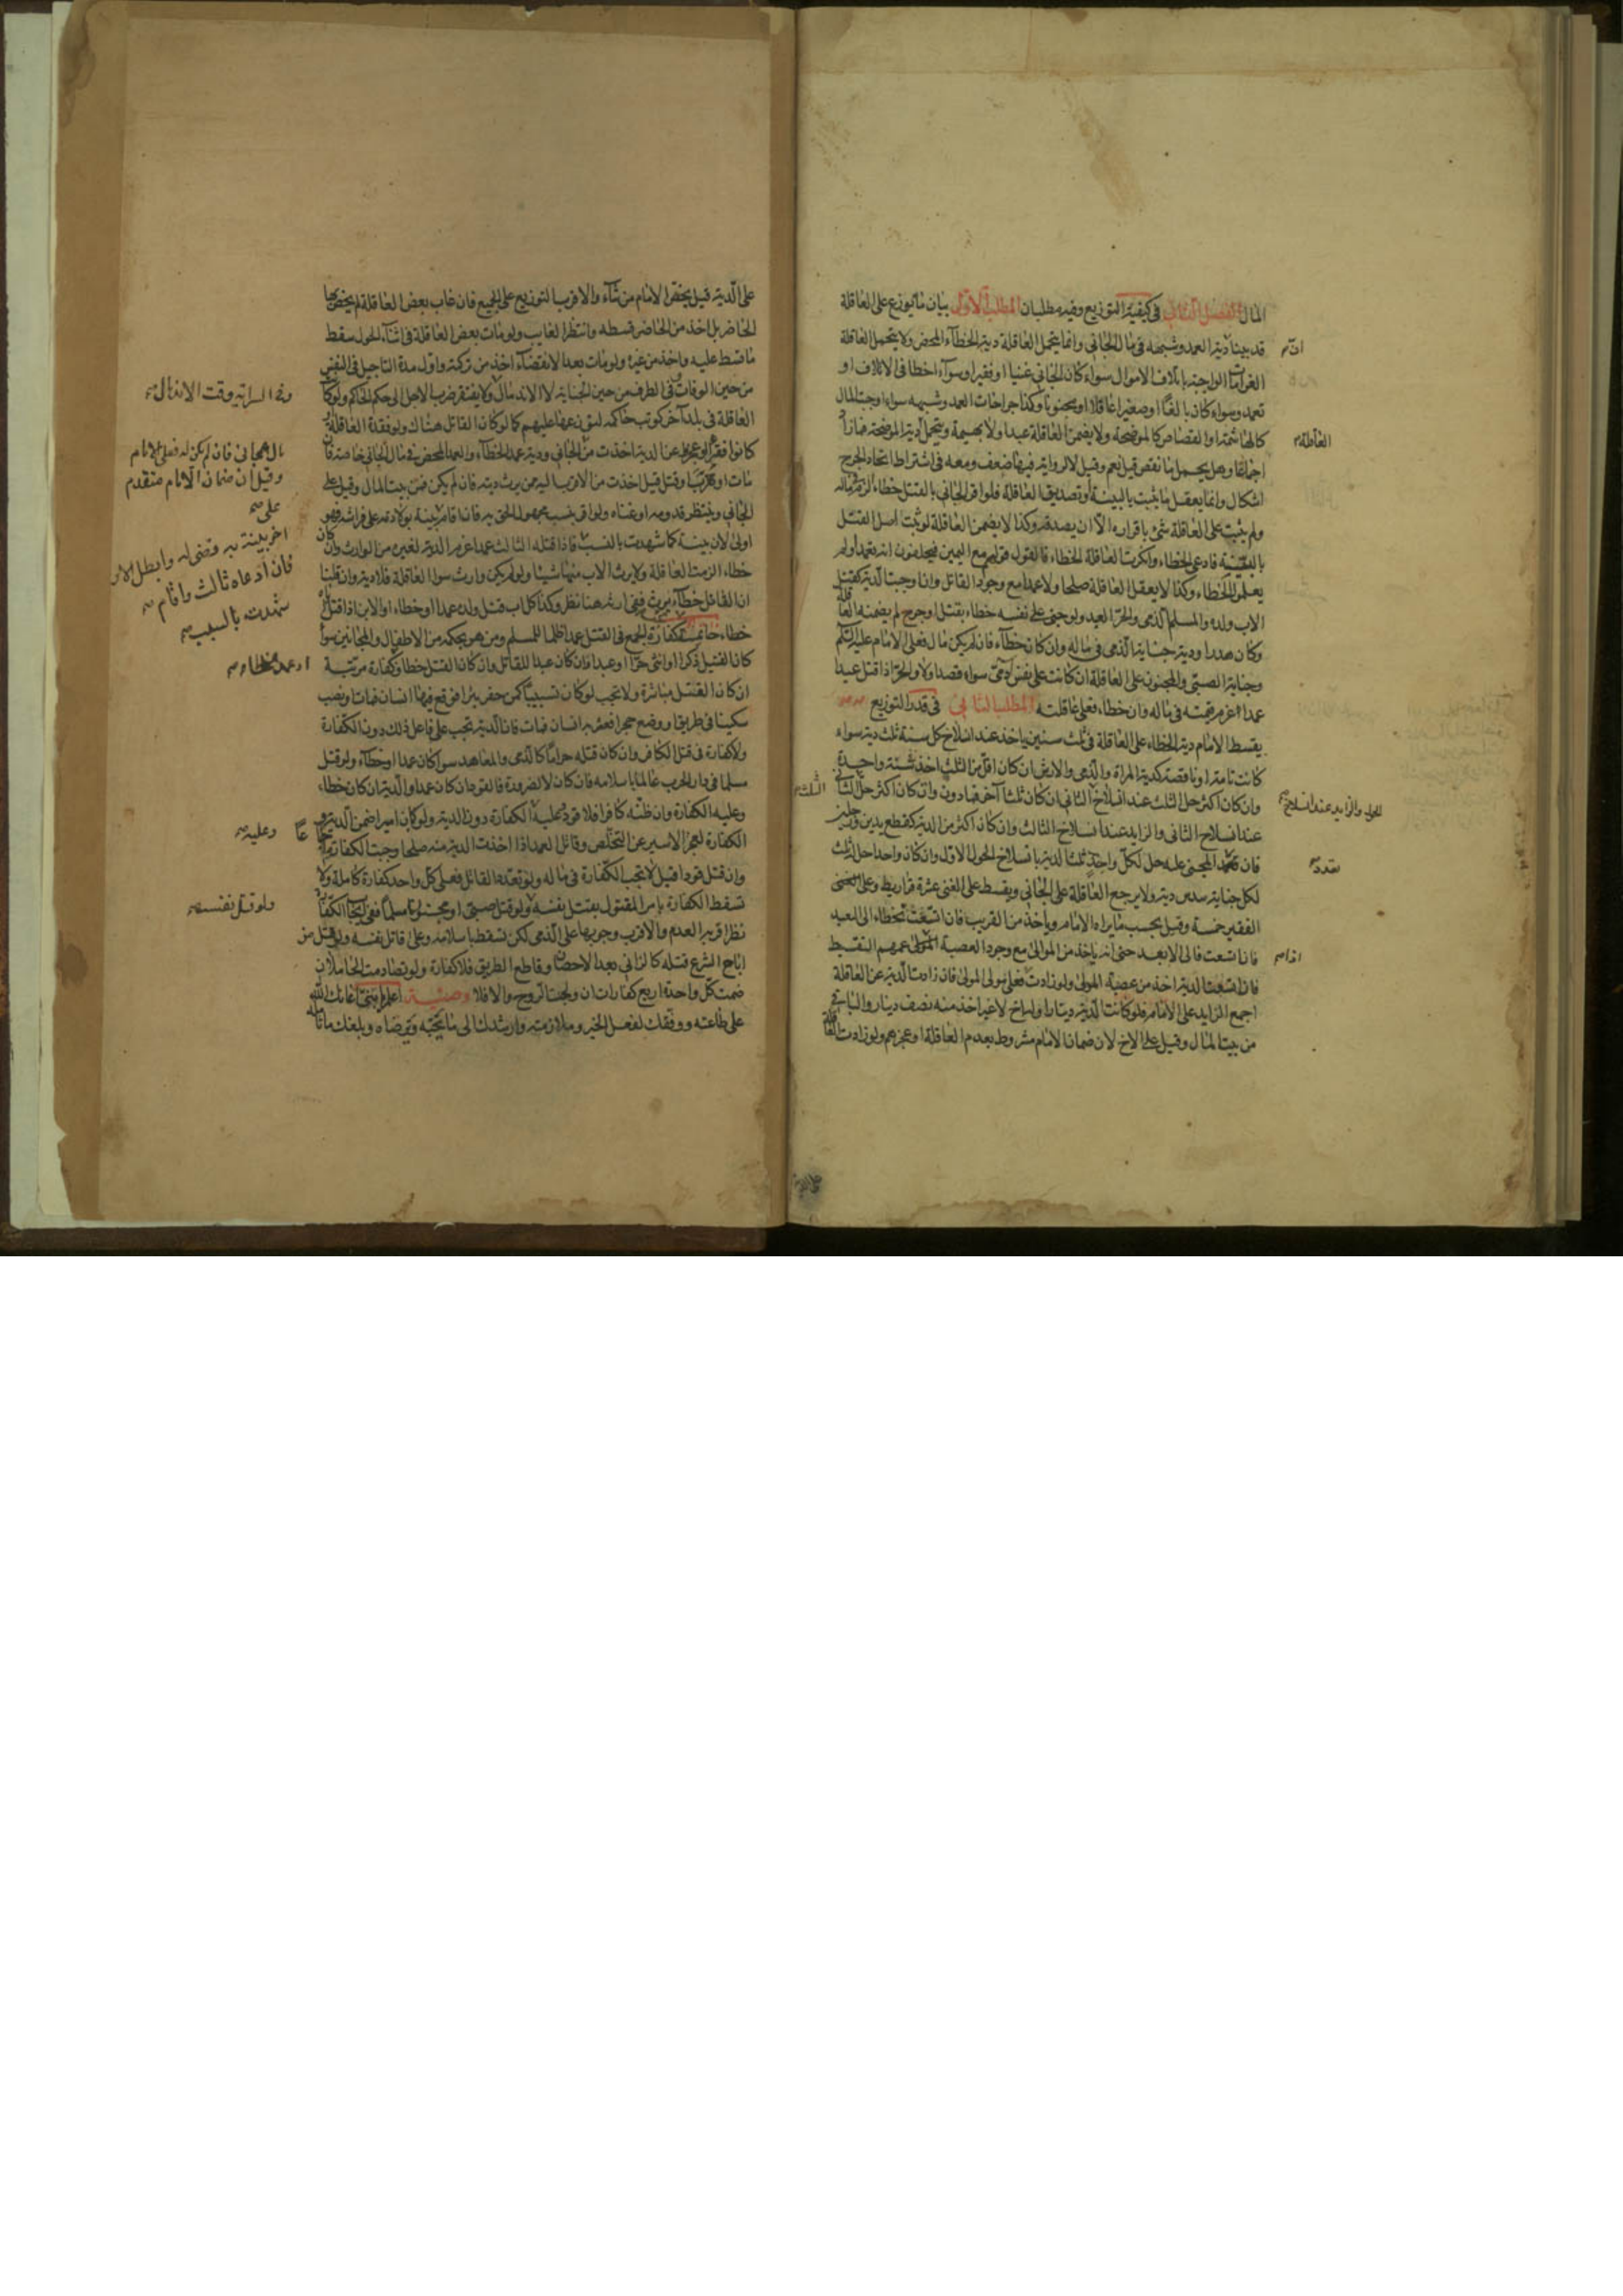 المال الفصل الثاني في كيفية التوزيع وفيه مطلبان المطلب الاول بيان ما يوزع على العاقلة
قد بينا ان دية العمد وشبهه في مال الجاني وانما يتحمل العاقلة دية الخطاء المحض ولا يتحمل العاقلة
الغرامات الواجبة باتلاف الاموال سواء كان الجاني غنيا او فقيرا وسواء اخطا في الاتلاف او
تعمد وسواء كان بالغا او صغيرا عاقلا او مجنونا وكذا جراحات العمد وشبيهه سواء اوجبت المال
كالهاشمة او القصاص كالموضحة ولا يضمن العاقلة عبدا ولا بهيمة ويتحمل دية الموضحة فما زاد
اجماعا وهل يحمل ما نقص قيل نعم وقيل لا لرواية فيها ضعف ومعه في اشتراط اتحاد الجرح
اشكال وانما يعقل ما يثبت بالبينة او تصديق العاقلة فلو اقر الجاني بالقتل خطاء الزم
ولم يثبت على العاقلة شئ باقراره الا ان يصدقه وكذا لا يضمن العاقلة لو ثبت اصل القتل
بالبينة فادعى الخطاء وانكرت العاقلة الخطاء فالقول قولهم مع اليمين فيحلفون انه تعمد او لم
يعلموا الخطاء وكذا لا يعقل العاقلة صلحا ولا عمدا مع وجود القاتل وان وجبت الدية كقتل
الاب ولده والمسلم الذمي والحر العبد ولو جنى على نفسه خطاء بقتل او جرح لم يضمنه العاقلة
وكان هدرا ودية جناية الذمي في ماله وان كانت خطاء فان لم يكن مال فعلى الامام عليه السلام
وجناية الصبي والمجنون على العاقلة ان كانت على نفس آدمي سواء قصدا ولا والحر اذا قتل عبدا
عمدا غرم قيمته في ماله وان خطاء فعلى عاقلته المطلب الثاني في قدر التوزيع
يقسط الامام دية الخطاء على العاقلة في ثلث سنين ياخذ عند انسلاخ كل سنة ثلث دية سواء
كانت تامة او ناقصة كدية المراة والذمي والارش ان كان اقل من الثلث اخذ في سنة واحدة
وان كان اكثر حل الثلث عند انسلاخ الثاني ان كان ثلثا آخر فما دون وان كان اكثر حل الثلث الثاني
عند انسلاخ الثاني والزايد عند انسلاخ الثالث وان كان اكثر من الدية كقطع يدين ورجلين
فان تعدد المجني عليه حل لكل واحد ثلث الدية بانسلاخ الحول الاول وان كان واحدا حل ثلث
لكل جناية سدس دية ولا يرجع العاقلة على الجاني ويقسط على الغني عشرة قراريط وعلى
الفقير خمسة وقيل بحسب ما يراه الامام وياخذ من القريب فان اتسعت تخطاه الى البعيد
فان اتسعت فالى الابعد حتى انه ياخذ من الموالى مع وجود العصبة
فان اتسعت الدية اخذ من عصبة المولى ولو زادت فعلى مولى المولى فان زادت الدية عن العاقلة
اجمع الزايد على الامام فلو كانت الدية دينارا وله اخ لا غير اخذ منه نصف دينار والباقي
من بيت المال وقيل على الاخ لان ضمان الامام مشروط بعدم العاقلة او عجزهم ولو زادت العاقلة
ان
العاقلة
الحول والزايد عند انسلاخ
تعدد
الثلث
على الدية قيل يخص الامام من شآء والاقرب التوزيع على الجميع فان غاب بعض العاقلة لم يخص بها
الحاضر بل اخذ من الحاضر قسطه وانتظر الغايب ولو مات بعض العاقلة في اثناء الحول سقط
ما قسط عليه واخذ من غيره ولو مات بعد الانقضاء اخذ من تركته واول مدة التاجيل في النفس
من حين الوفات وفي الطرف من حين الجناية لا الاندمال ولا يفتقر ضرب الاجل الى حكم الحاكم ولو كان
العاقلة في بلد آخر كوتب حاكمه ليوزعها عليهم كما لو كان القاتل هناك ولو فقدة العاقلة او
كانوا فقراء او عجزوا عن الدية اخذت من الجاني ودية عمد الخطاء والعمد المحض في مال الجاني خاصة فان
مات او هرب او قتل قيل اخذت من الاقرب اليه ممن يرث ديته فان لم يكن فمن بيت المال وقيل على
الجاني وينتظر قدومه او غناه ولو اقر بنسب مجهول الحق به فان اقام بينة بولادته على فراشه فهو
اولى لان بينته كما شهدت بالنسب فاذا قتله الثالث عمدا غرم الدية لغيره من الوارث وان كان
خطاء الزمت العاقلة ولا يرث الاب منها شيئا ولو لم يكن وارث سوا العاقلة فلا دية وان قلنا
ان القاتل خطاء يرث ففي ارثه هنا نظر وكذا كل اب قتل ولده عمدا او خطاء او الابن اذا قتل اباه
خطاء خاتمة كفارة الجمع في القتل عمدا ظلما للمسلم ومن هو بحكمه من الاطفال والمجانين سواء
كان القتيل ذكرا او انثى حرا او عبدا وان كان عبدا للقاتل وان كان القتل خطا فكفارة مرتبة
ان كان القتل مباشرة ولا تجب لو كان تسبيبا كمن حفر بئرا فوقع فيها انسان فمات او نصب
سكينا في طريق او وضع حجرا فعثر به انسان فمات فان الدية تجب على فاعل ذلك دون الكفارة
ولا كفارة في قتل الكافر وان كان قتله حراما كالذمي والمعاهد سوا كان عمدا او خطاء ولو قتل
مسلما في دار الحرب عالما باسلامه فان كان لا لضرورة فالقود ان كان عمدا والدية ان كان خطاء
وعليه الكفارة وان ظنه كافرا فلا قود عليه الكفارة دون الدية ولو كان اسيرا ضمن الدية و
الكفارة لعجز الاسير عن التخلص وقاتل العمد اذا اخذت الدية منه صلحا وجبت الكفارة
وان قتل قودا قيل لا تجب الكفارة في ماله ولو تعدد القاتل فعلى كل واحد كفارة كاملة ولا
تسقط الكفارة بامر المقتول بقتل نفسه ولو قتل صبي او مجنون مسلما ففي ايجاب الكفارة
نظر اقربه العدم والاقرب وجوبها على الذمي لكن تسقط باسلامه وعلى قاتل نفسه ولو قتل من
اباح الشرع قتله كالزاني بعد الاحصان وقاطع الطريق فلا كفارة ولو تصادمت الحاملان
ضمنت كل واحدة اربع كفارات ان ولجت الروح والا فلا وصية اعلم يا بني اعانك الله
على طاعته ووفقك لفعل الخير وملازمته وارشدك الى ما يحبه ويرضاه وبلغك ما
وفي السراية وقت الاندمال
مال الجاني فان لم يكن له فعلى الامام
وقيل ان ضمان الامام متقدم
على
اخر بينة به وقضى له وابطل الاول
فان ادعاه ثالث واقام
شهدت بالسبب
او عمد خطاء
وعليه
ولو قتل نفسه